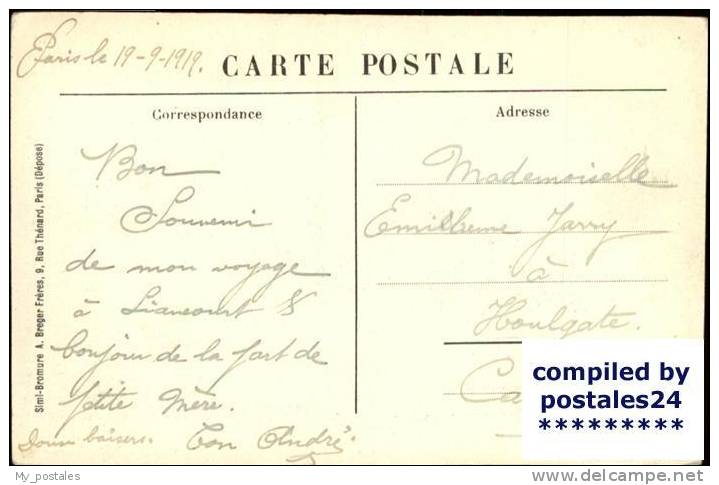 Paris le 19-9-1919.
CARTE POSTALE
Correspondance
Adresse
Bon
Souvenir
de mon voyage
à Liancourt &
bonjour de la part de
petite mère.
Doux baisers. Ton André
Mademoiselle
Jarry
à
Houlgate.
Ca
Simi-Bromure A. Breger Frères, 9, Rue Thénard, Paris (Déposé)
compiled by
postales24
*********
My_postales
delcampe.net